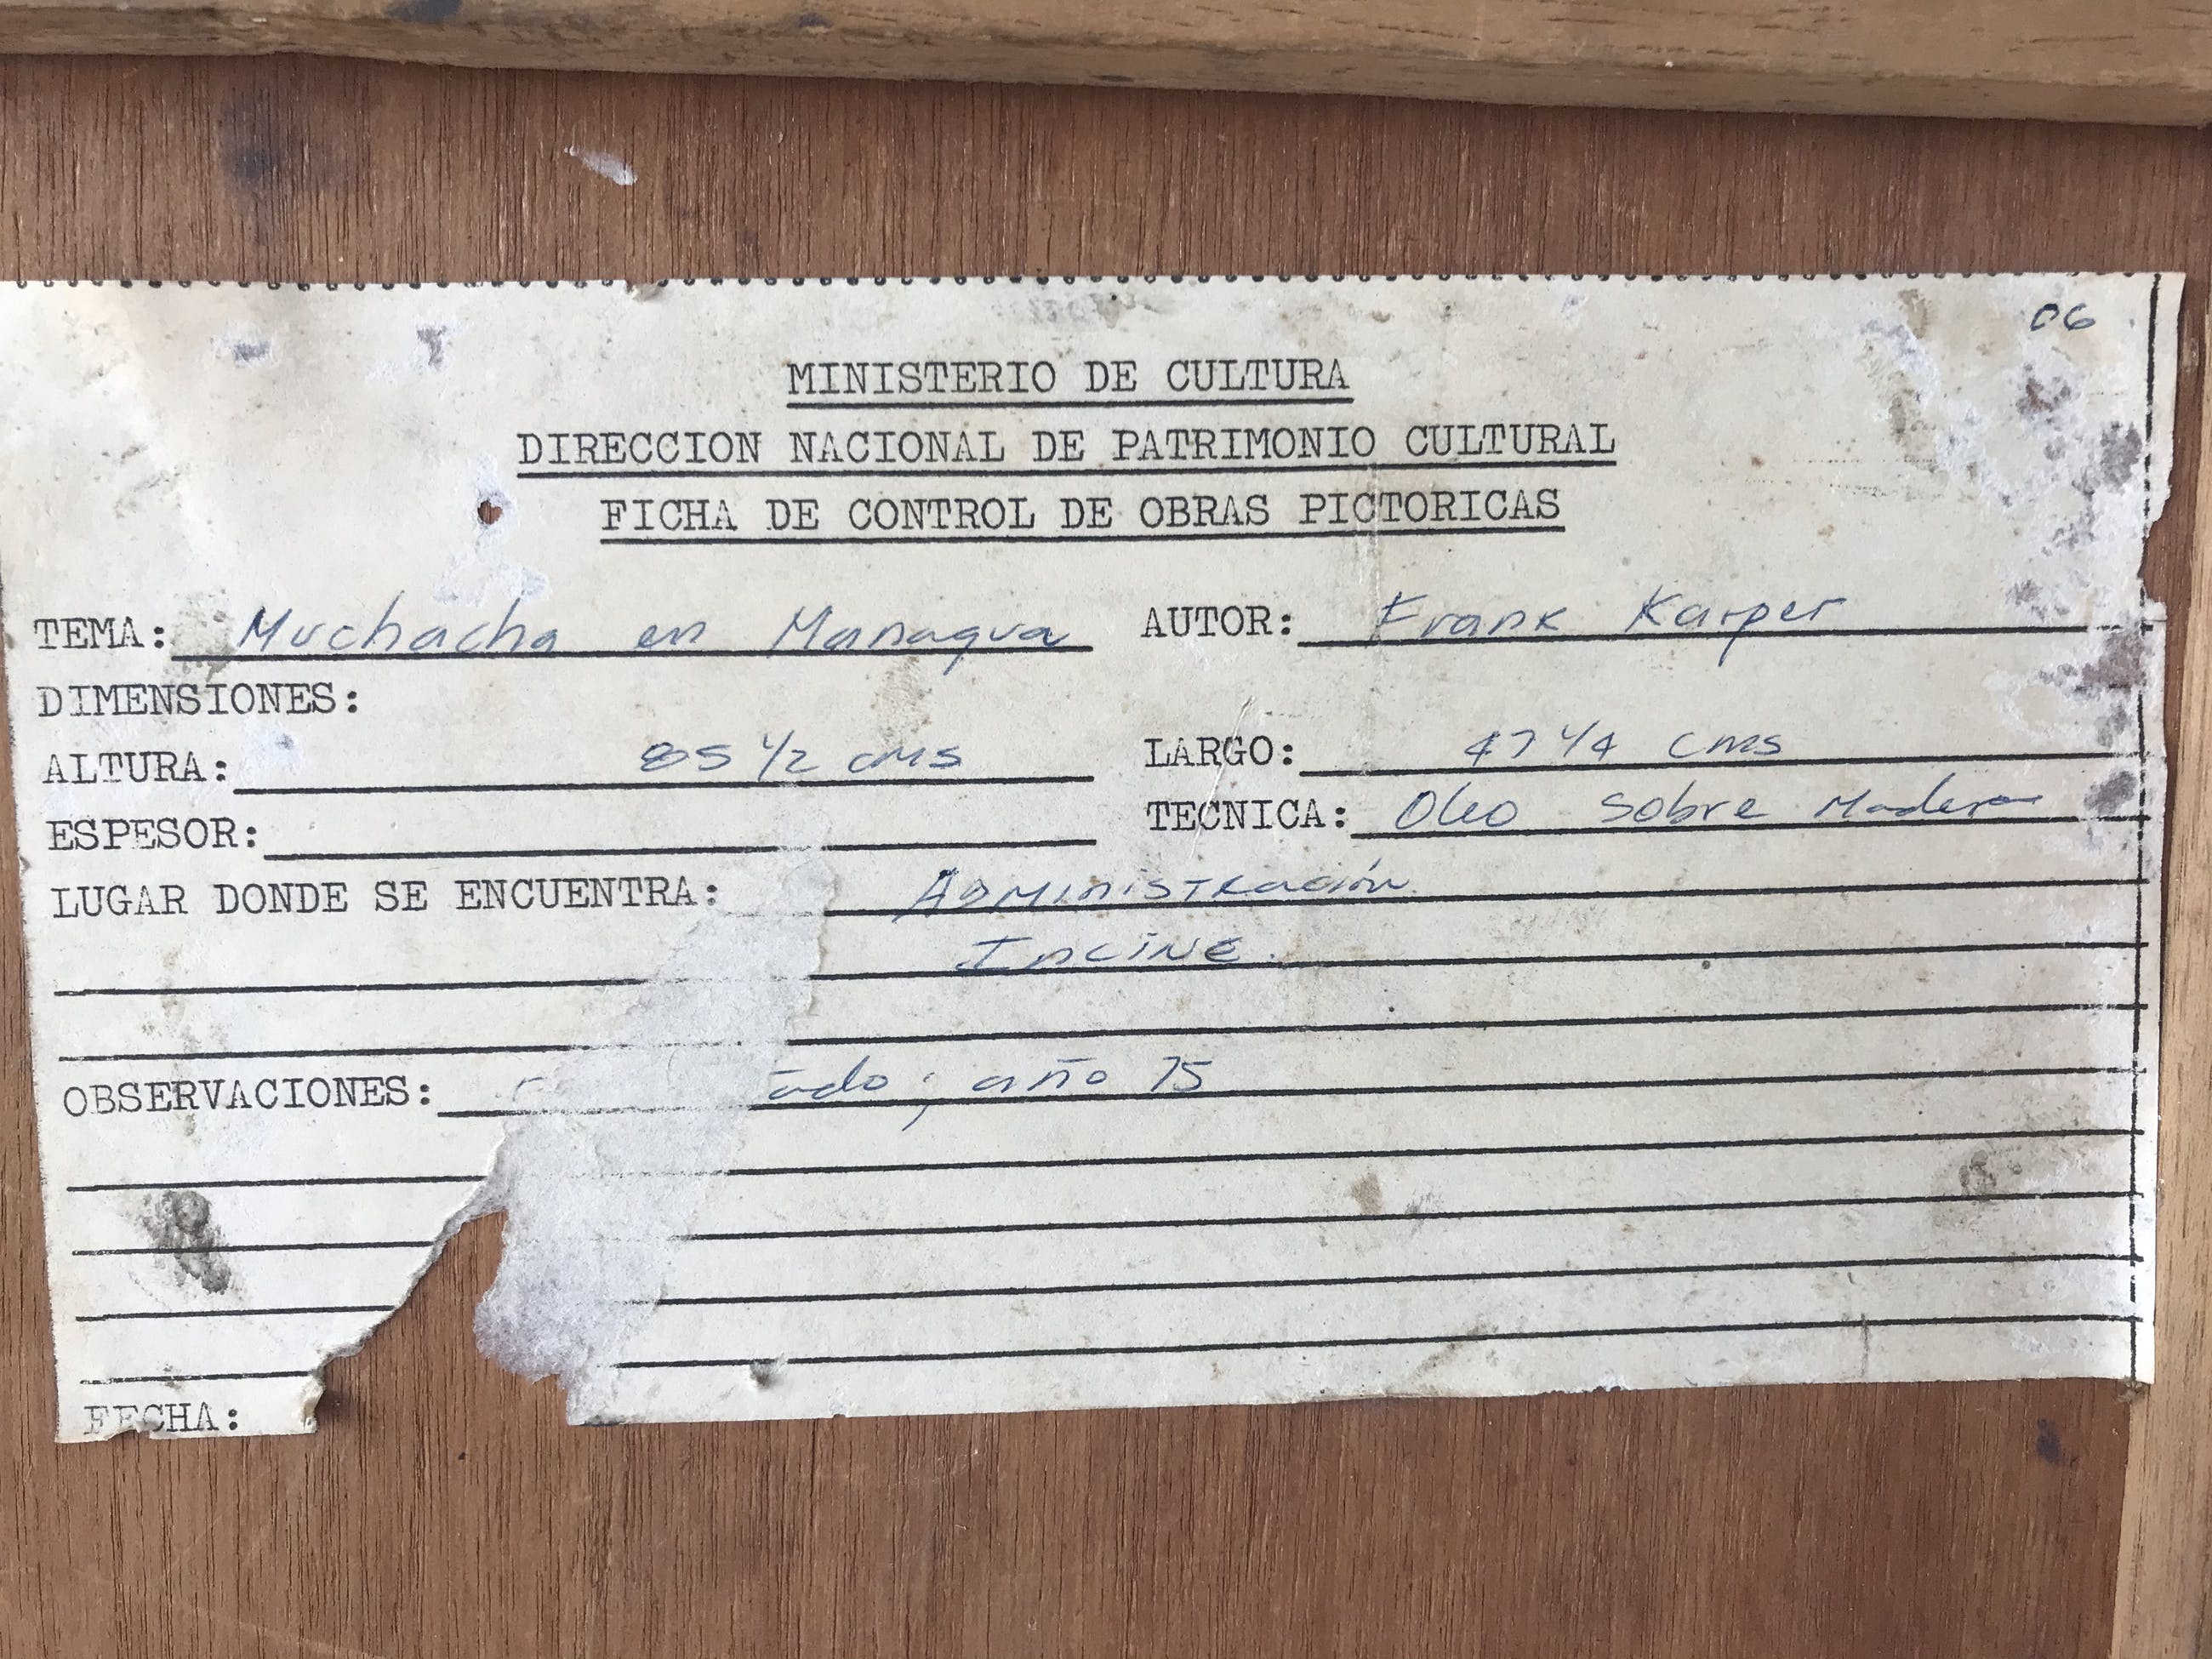 06
MINISTERIO DE CULTURA
DIRECCION NACIONAL DE PATRIMONIO CULTURAL
FICHA DE CONTROL DE OBRAS PICTORICAS
TEMA: Muchacha en Managua AUTOR: Frank Karper
DIMENSIONES:
ALTURA: 85 1/2 cms LARGO: 47 1/4 cms
ESPESOR: TECNICA: Oleo Sobre Madera
LUGAR DONDE SE ENCUENTRA: Administración
Incine.
OBSERVACIONES: ado; año 75
FECHA: